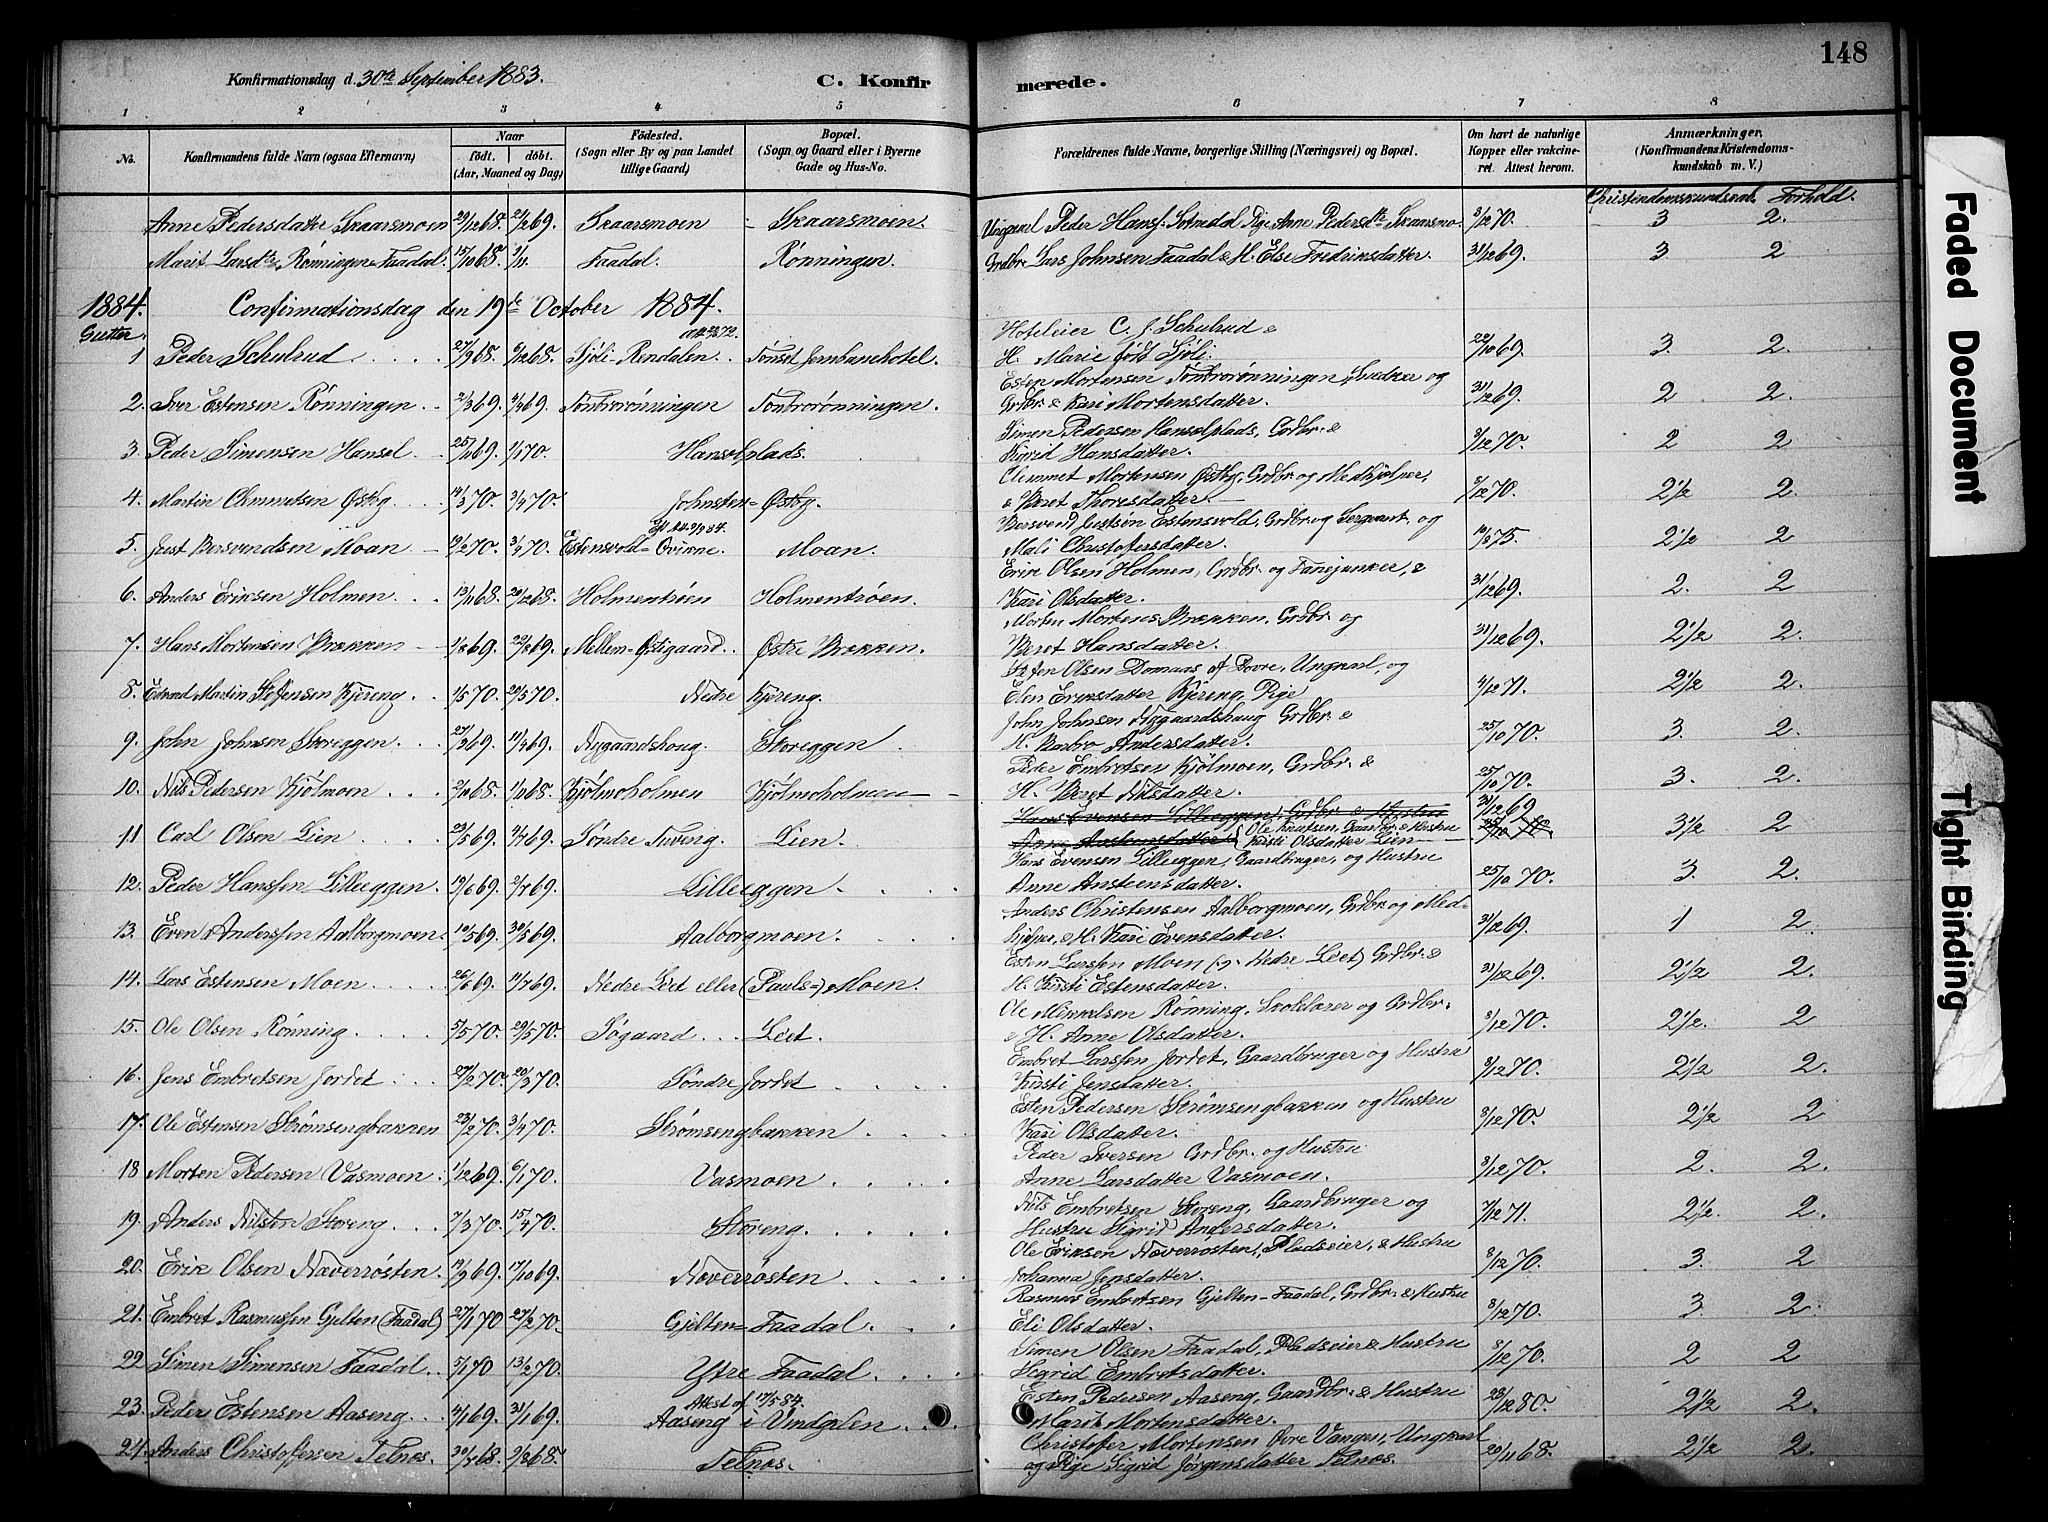 148
Konfirmationsdag d. 30te September 1883.
C. Konfirmerede.
1 2 3 4 5 6 7 8
No.
Konfirmandens fulde Navn (ogsaa Efternavn)
Naar
födt. döbt.
(Aar, Maaned og Dag)
Födested.
(Sogn eller By og paa Landet
tillige Gaard)
Bopæl.
(Sogn og Gaard eller i Byerne
Gade og Hus-No.
Forældrenes fulde Navne, borgerlige Stilling (Næringsvei) og Bopæl.
Om havt de naturlige
Kopper eller vakcine-
ret. Attest herom.
Anmærkninger.
(Konfirmandens Kristendoms-
kundskab m. V.)
Christendomskundskab Forhold.
Anne Pedersdatter Skaarsmoen 29/12 68. 21/2 69. Skaarsmoen - Skaarsmoen. Ungkarl Peder Hansf. Sotnedal Pige Anne Pedersdtr Skaarsmo. 3/12 70. 3 2.
Marit Larsdtr Rønningen Faadal. 15/10 68. 1/11 Faadal. Rønningen. Grdbr. Lars Johnsen Faadal & H. Else Fredriksdatter. 31/12 69. 3 2
1884. Confirmationsdag den 19de October 1884.
Gutter.
1 Peder Schulrud 27/9 68. 6/12 68. Sjöli-Rendalen. Tønset Jernbanehotel. Hoteleier C. J. Schulrud &
H. Marie født Sjöli. 22/10 69. 3. 2.
2. Iver Estensen Rønningen 2/3 69. 4/4 69. Tonbrorønningen Tonbrorønningen. Esten Mortensen Tonbrorønningen, Snedker og
Grdbr. & Kari Mortensdatter. 31/12 69. 2 2.
3. Peder Simensen Hansel. 25/11 69. 1/1 70. Hanselplads. Simen Pedersen Hanselplads, Grdbr. &
Sigrid Hansdatter. 3/12 70. 2 2
4. Martin Clemmetsen Østby. 14/3 70. 3/4 70. Johnsten-Østby. Clemmet Mortensen Østby, Grdbr. og Medhjelper,
& Beret Thoresdatter. 8/12 70. 2 1/2 2.
5. Just Bersvendsen Moan 19/2 70. 3/4 70. Estensvold-Qvikne. Moan. Bersvend Justsøn Estensvold, Grdbr. og Sergeant, og
Mali Christofersdatter. 10/8 75. 2 1/2 2
6. Anders Eriksen Holmen. 13/11 68. 20/12 68. Holmentrøen Holmentrøen. Erik Olsen Holmen, Grdbr. og Fanejunker, &
Kari Olsdatter. 31/12 69. 2. 2
7. Hans Mortensen Brækken 1/8 69. 22/8 69. Mellem-Østigaard. Østre Brækken. Morten Mortens. Brækken, Grdbr. og
Beret Hansdatter. 31/12 69. 2 1/2 2.
8. Edvard Martin Steffensen Kjøreng 1/5 70. 29/5 70. Nedre Kjøreng. Steffen Olsen Domaas af Dovre, Ungkarl, og
Elen Eriksdatter Kjøreng, Pige 4/12 71. 2 1/2 2.
9. John Johnsen Storeggen. 27/3 69. 11/4 69. Nygaardshoug. Storeggen. John Johnsen Nygaardshaug Grdbr. &
H. Barbro Andersdatter. 25/10 70. 3. 2.
10. Nils Pedersen Kjølmoen 2/10 68. 1/10 68. Kjølmoholmen Kjølmoholmen Peder Embretsen Kjølmoen, Grdbr. &
H. Beret Nilsdatter. 25/10 70. 3. 2.
11 Carl Olsen Lien 23/5 69. 4/7 69. Søndre Tuveng. Lien. Hans Evensen Lilleeggen, Grdbr. & Hustru
Anne Aasteensdatter. Ole Knutsen, Gaardbr. & Hustru
Kirsti Olsdatter Lien 31/12 69 3 1/2 2
12. Peder Hanssen Lilleeggen. 19/6 69. 2/7 69. Lilleeggen. Hans Evensen Lilleeggen, Gaardbruger, og Hustru
Anne Ansteensdatter. 25/10 70. 3. 2.
13. Even Anderssen Aalborgmoen. 10/5 69. 30/5 69. Aalborgmoen. Anders Christensen Aalborgmoen, Grdbr. og Med-
hjelper, & H. Kari Evensdatter. 31/12 69. 1 2
14. Lars Estensen Moen. 26/6 69. 11/7 69. Nedre Leet eller (Pauls-) Moen. Esten Larssen Moen (og Nedre Leet) Grdbr. &
H. Kirsti Estensdatter. 31/12 69. 2 1/2 2.
15. Ole Olsen Rønning. 5/5 70. 29/5 70. Søgaard Leet. Ole Mikkelsen Rønning, Skolelærer og Grdbr.
& H. Anne Olsdatter. 8/12 70. 2 1/2. 2
16. Jens Embretsen Jordet 27/2 70. 20/3 70. Søndre Jordet Embret Larssen Jordet, Gaardbruger og Hustru
Kirsti Jensdatter. 8/12 70. 2 1/2 2.
17. Ole Estensen Strømsengbakken 23/2 70. 3/4 70. Strømsengbakken Esten Pedersen Strømsengbakken og Hustru
Kari Olsdatter. 8/12 70. 2 1/2 2
18 Morten Pedersen Vasmoen. 1/12 69. 6/1 70. Vasmoen Peder Iversen Grdbr. og Hustru
Anne Larsdatter Vasmoen. 8/12 70. 2. 2.
19. Anders Nilsen Storeng 7/3 70. 15/4 70. Storeng. Nils Embretsen Storeng, Gaardbruger og
Hustru Sigrid Andersdatter. 7/12 71. 2 1/2. 2.
20. Erik Olsen Næverrøsten. 19/9 69. 17/10 69. Næverrøsten Ole Eriksen Næverrøsten, Pladseier, & Hustru
Johanna Jensdatter. 8/12 70. 3. 2
21. Embret Rasmussen Gjelten (Faadal) 27/1 70 27/2 70. Gjelten-Faadal. Rasmus Embretsen Gjelten-Faadal, Grdbr. & Hustru
Eli Olsdatter. 8/12 70. 3. 2.
22 Simen Simensen Faadal. 5/1 70 13/2 70. Ytre Faadal Simen Olsen Faadal, Pladseier & Hustru
Sigrid Embretsdatter. 8/12 70. 2 2
23. Peder Estensen Aaseng. 4/1 69. 31/1 69. Attest af 17/5 84.
Aaseng i Vingelen Esten Pedersen Aaseng, Gaardbr. & Hustru
Marit Mortensdatter. 28/12 80. 2 1/2 2.
24. Anders Christoffersen Telnes. 30/7 68. 9/8 68. Telnes. Christofer Mortensen Øvre Vangen, Ungkarl
og Pige Sigrid Jørgensdatter Telnes. 20/11 68. 2 1/2 2.
Faded Document
Tight Binding